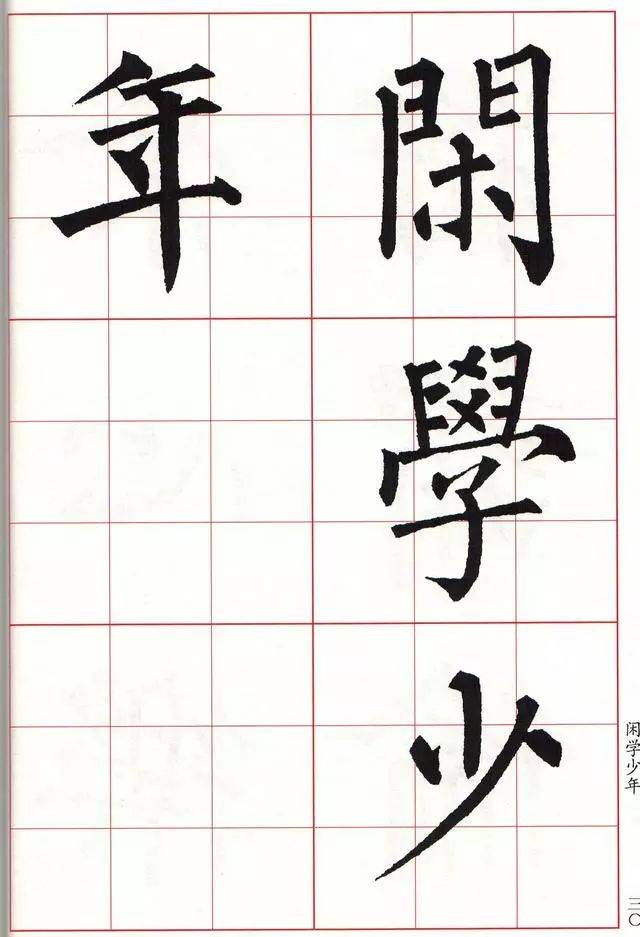 閑學少
年
闲学少年
三〇